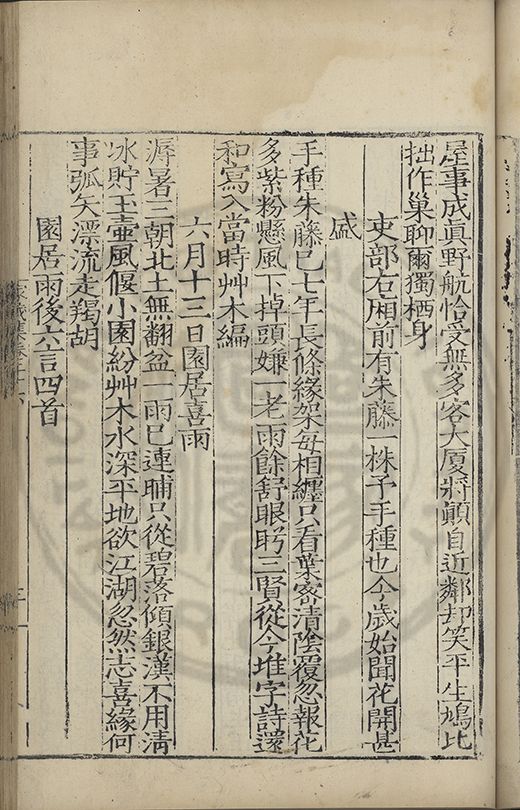 屋事成眞野航恰受無多客大厦將顚自近鄰却笑平生鳩比
拙作巢聊爾獨栖身
吏部右厢前有朱藤一株予手種也今歲始聞花開甚
盛
手種朱藤巳七年長條緣架每相纏只看葉密清陰覆忽報花
多紫粉懸風下掉頭嫌一老雨餘舒眼眄三賢從今堆字詩還
和寫入當時艸木編
六月十三日園居喜雨
溽暑三朝北土無翻盆一雨巳連晡只從碧落傾銀漢不用淸
冰貯玉壺風偃小園紛艸木水深平地欲江湖忽然志喜緣何
事弧矢漂流走羯胡
園居雨後六言四首
家藏集卷二十六